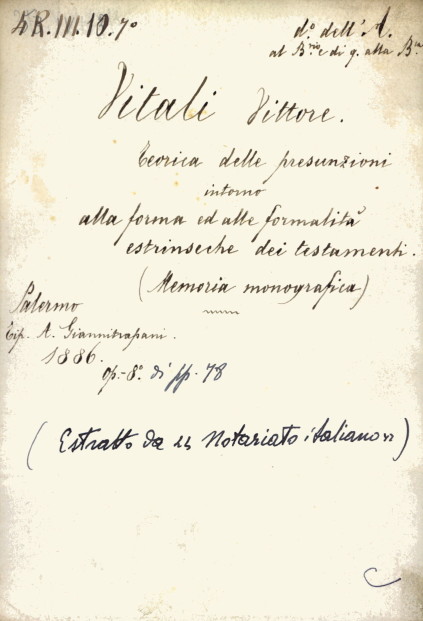 AR.III.10.7º
dº dell'A.
al Bⁿⁱᵒ e di q. alla Bᶜᵃ
Vitali Vittore.
Teorica delle presunzioni
intorno
alla forma ed alle formalità
estrinseche dei testamenti.
(Memoria monografica)
Palermo
Tip. A. Giannitrapani.
1886.
op.-8º. di pp. 78
(Estratto da "Notariato italiano")